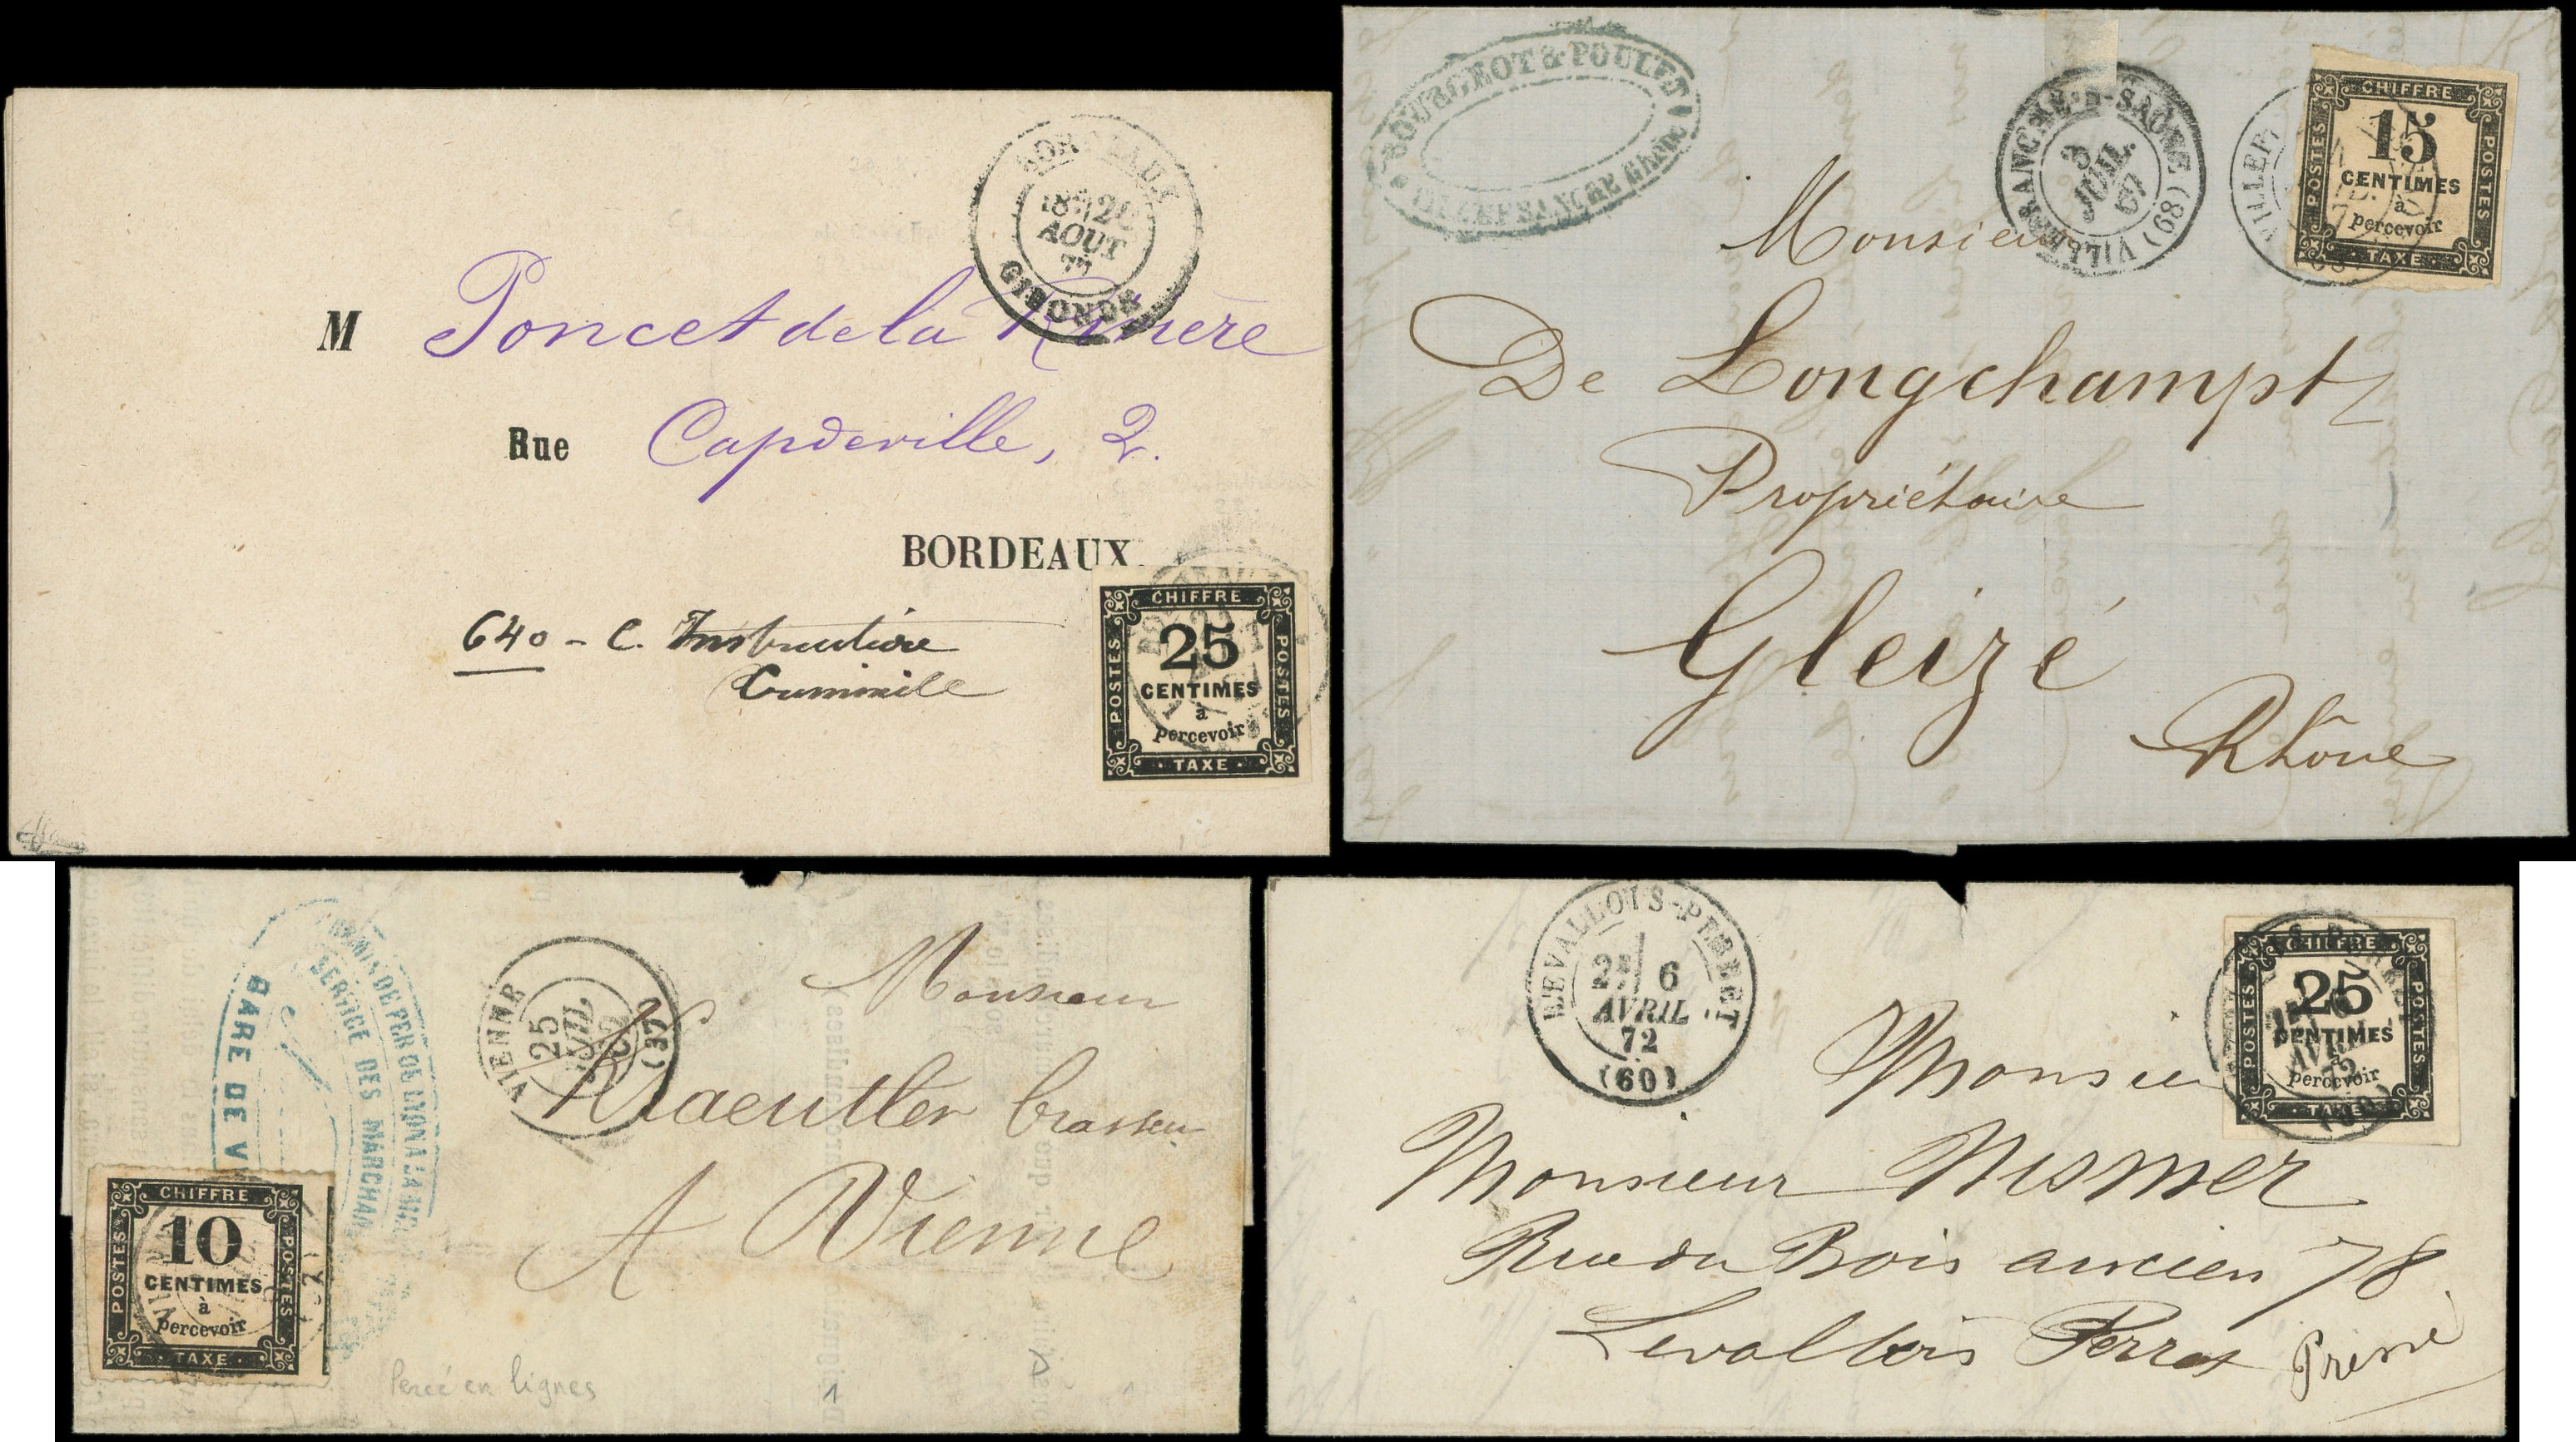 BORDEAUX
18E/21
AOUT
77
GIRONDE
M Poncet de la
Rue Capdeville, 2.
BORDEAUX
640 - C. Instructione
Criminile
CHIFFRE
POSTES
25
CENTIMES
à
percevoir
POSTES
TAXE
BOURGEOT & POULET
VILLEFRANCHE Rhône
VILLEFRANCHE-S-SAÔNE (68)
3
JUIL.
67
CHIFFRE
POSTES
15
CENTIMES
à
percevoir
POSTES
TAXE
Monsieur
De Longchampt
Propriétaire
Gleizé
Rhône
CHEMINS DE FER DE LYON A LA
SERVICE DES MARCHAN
GARE DE V
VIENNE
25
JUIL
(37)
Monsieur
Kraeutler brasseur
A Vienne
CHIFFRE
POSTES
10
CENTIMES
à
percevoir
POSTES
TAXE
Percé en lignes
1
LEVALLOIS-PERRET
2E/ 6
AVRIL
72
(60)
CHIFFRE
POSTES
25
CENTIMES
à
percevoir
POSTES
TAXE
Monsieur
Monsieur Nismer
Rue du Bois ancien 78
Levallois Perret